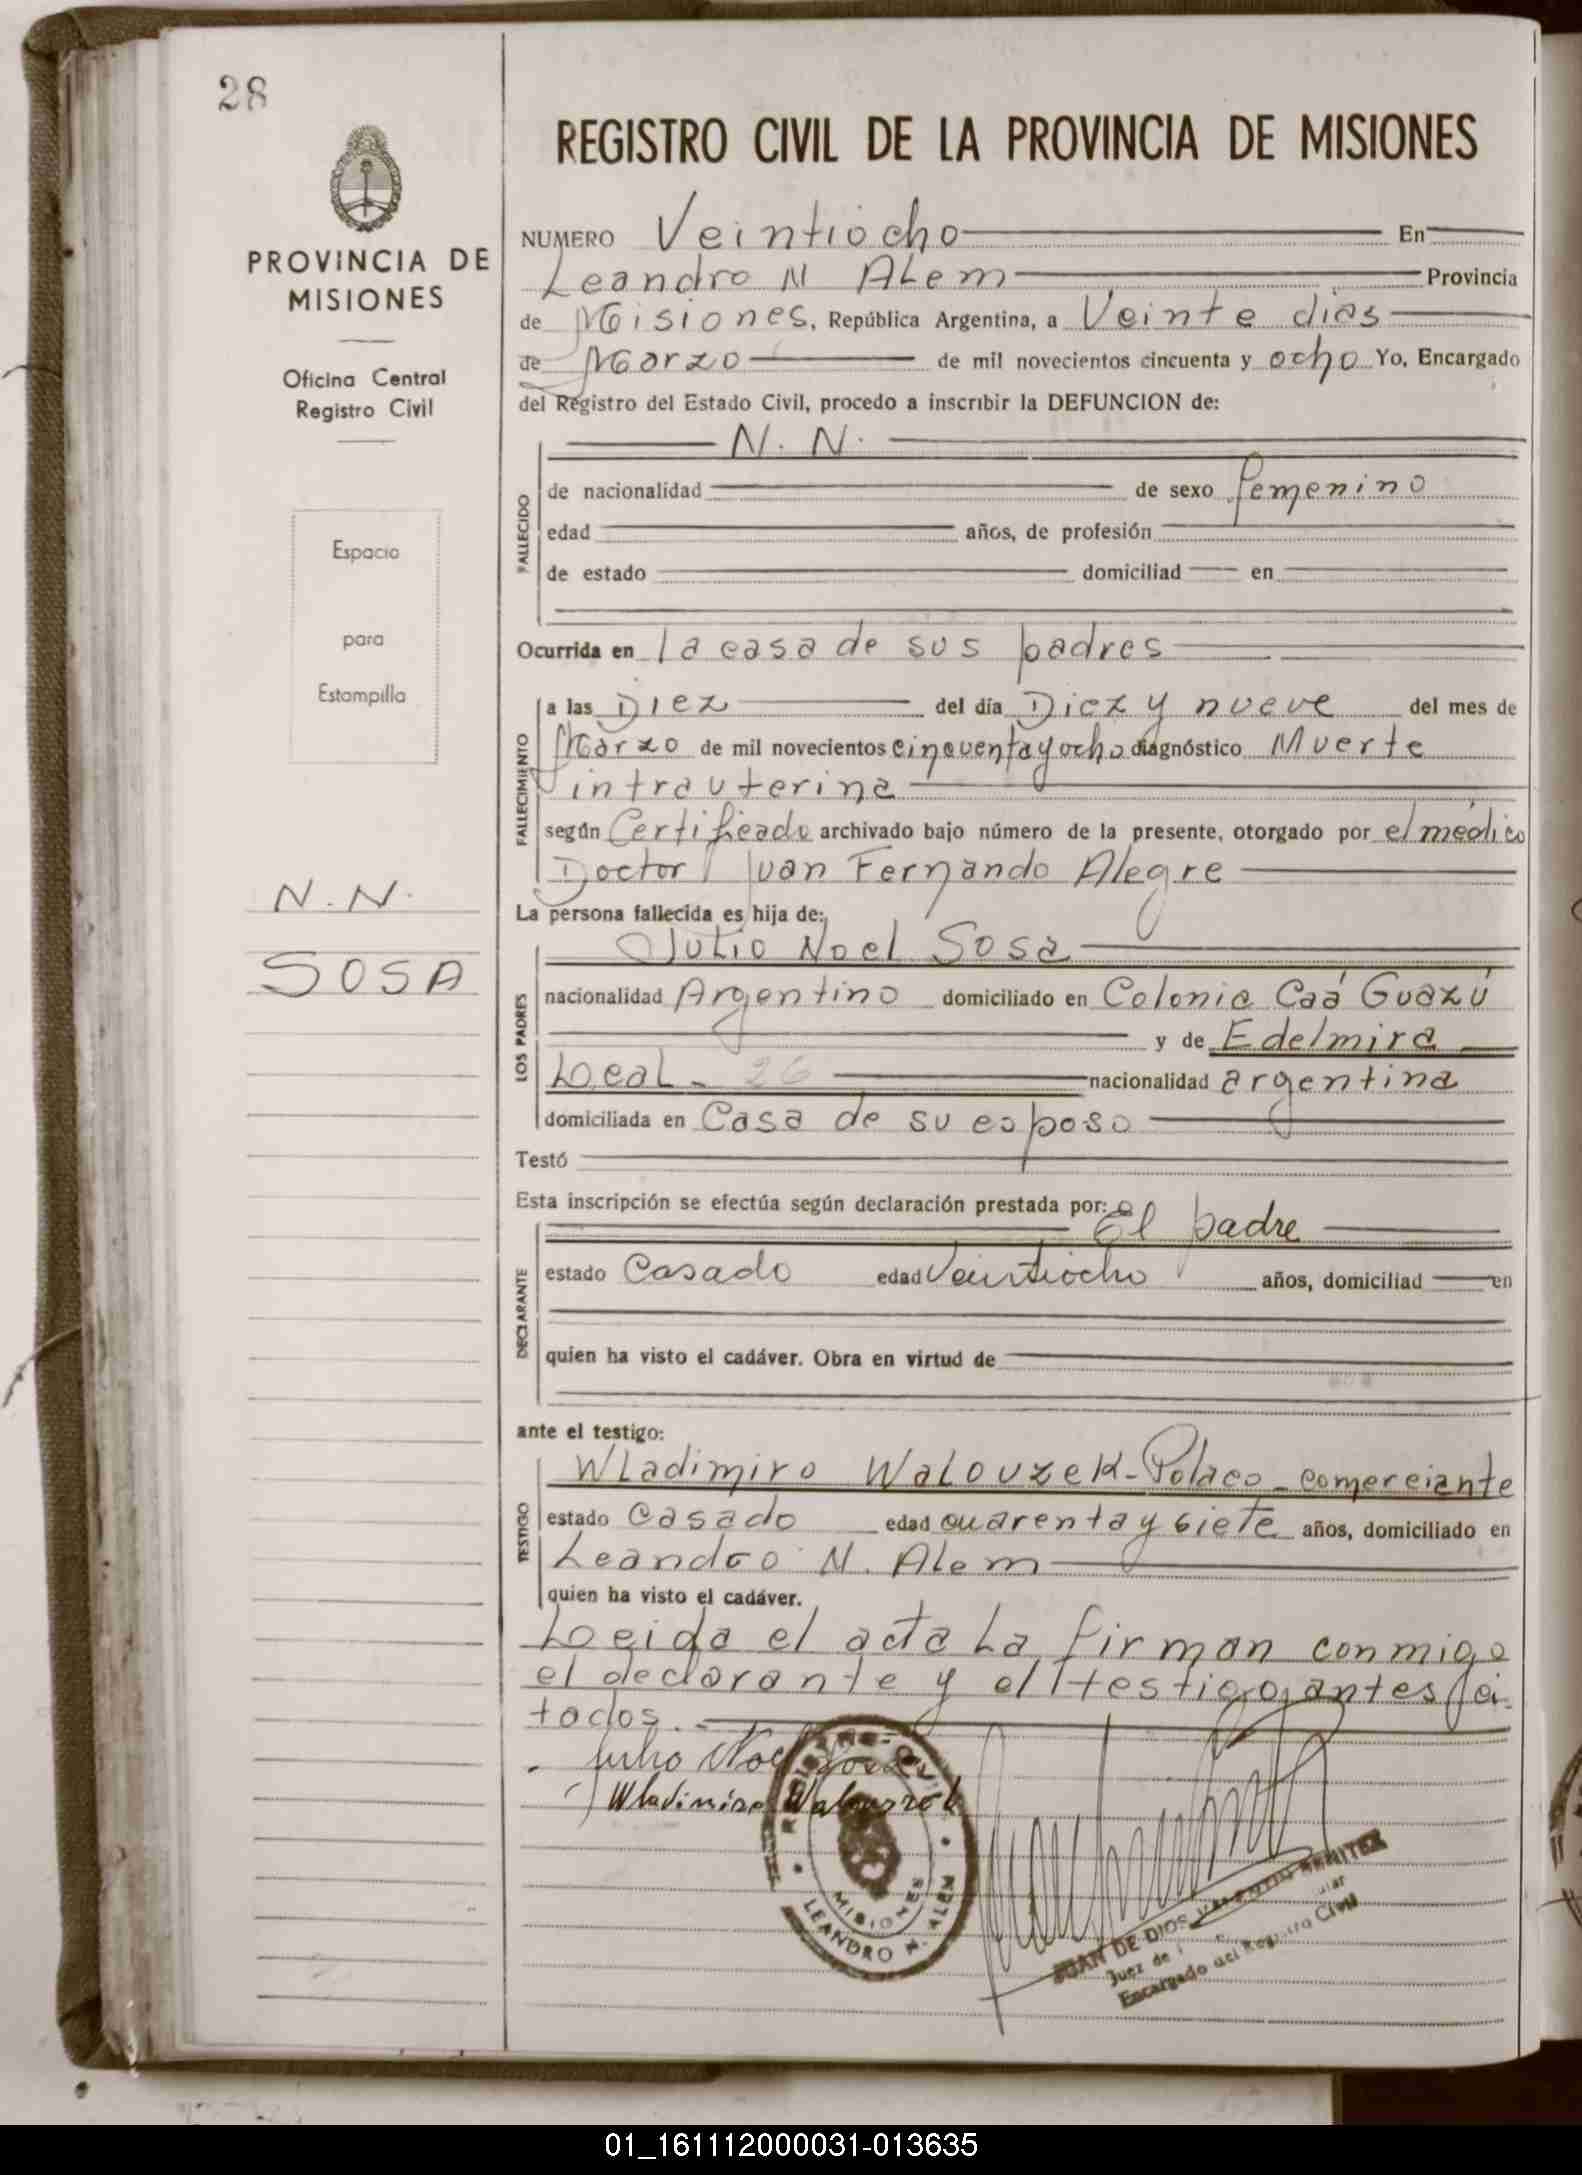 28
PROVINCIA DE
MISIONES
Oficina Central
Registro Civil
Espacio
para
Estampilla
N. N.
SOSA
REGISTRO CIVIL DE LA PROVINCIA DE MISIONES
NUMERO Veintiocho En
Leandro N Alem Provincia
de Misiones, República Argentina, a Veinte dias
de Marzo de mil novecientos cincuenta y ocho Yo, Encargado
del Registro del Estado Civil, procedo a inscribir la DEFUNCION de:
N. N.
FALLECIDO
de nacionalidad de sexo femenino
edad años, de profesión
de estado domiciliad en
Ocurrida en la casa de sus padres
FALLECIMIENTO
a las Diez del día Diez y nueve del mes de
Marzo de mil novecientos cincuenta y ocho diagnóstico Muerte
intrauterina
según Certificado archivado bajo número de la presente, otorgado por el médico
Doctor Juan Fernando Alegre
La persona fallecida es hija de:
Julio Noel Sosa
LOS PADRES
nacionalidad Argentino domiciliado en Colonia Caá Guazú
y de Edelmira
Leal - 26 nacionalidad argentina
domiciliada en Casa de su esposo
Testó
Esta inscripción se efectúa según declaración prestada por: El padre
DECLARANTE
estado Casado edad Veintiocho años, domiciliad en
quien ha visto el cadáver. Obra en virtud de
ante el testigo:
Wladimiro Walouzek - Polaco - comerciante
TESTIGO
estado Casado edad cuarenta y siete años, domiciliado en
Leandro N. Alem
quien ha visto el cadáver.
Leida el acta la firman conmigo
el declarante y el testigo antes ci-
tados. -
Julio Noel Sosa
Wladimiro Walouzek
REGISTRO CIVIL
MISIONES
LEANDRO N. ALEM
JUAN DE DIOS VALENTIN BENITEZ
Juez de
Encargado del Registro Civil
01_161112000031-013635